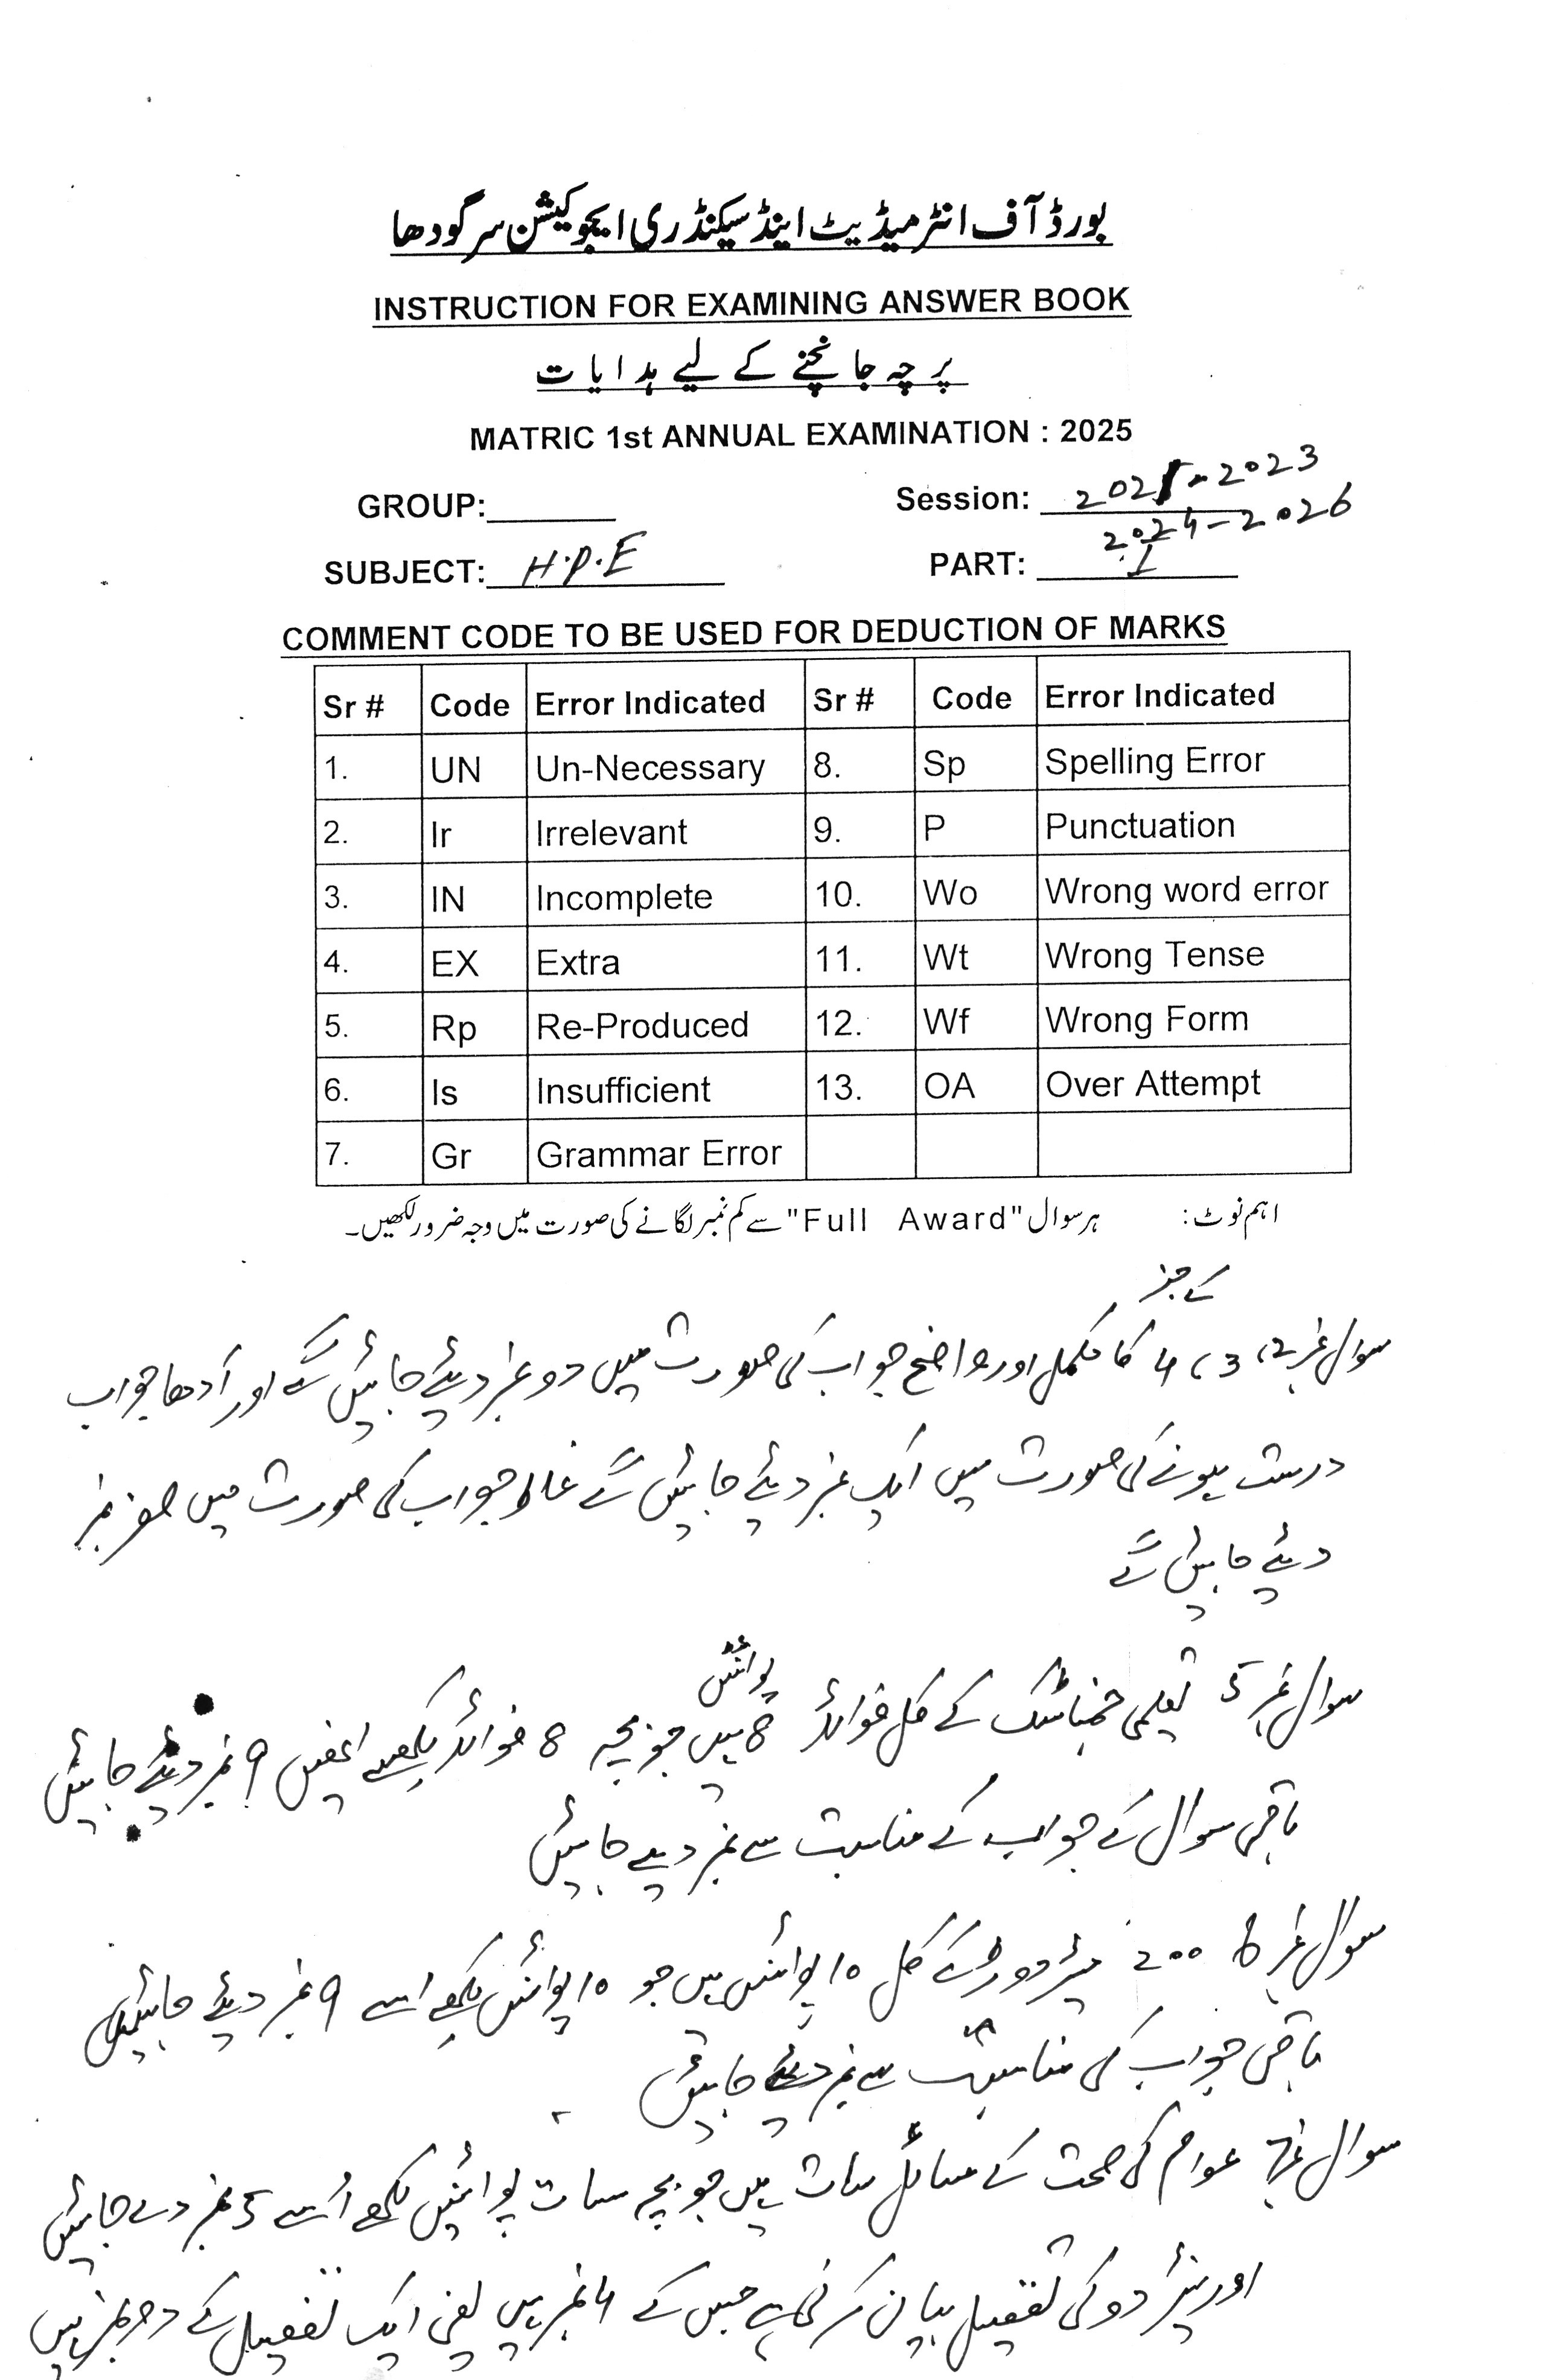 بورڈ آف انٹرمیڈیٹ اینڈ سیکنڈری ایجوکیشن سرگودھا
INSTRUCTION FOR EXAMINING ANSWER BOOK
پرچہ جانچنے کے لیے ہدایات
MATRIC 1st ANNUAL EXAMINATION : 2025
GROUP: Session: 2021-2023
2024-2026
SUBJECT: H.P.E PART: I
COMMENT CODE TO BE USED FOR DEDUCTION OF MARKS
Sr # Code Error Indicated Sr # Code Error Indicated
1. UN Un-Necessary 8. Sp Spelling Error
2. Ir Irrelevant 9. P Punctuation
3. IN Incomplete 10. Wo Wrong word error
4. EX Extra 11. Wt Wrong Tense
5. Rp Re-Produced 12. Wf Wrong Form
6. Is Insufficient 13. OA Over Attempt
7. Gr Grammar Error
اہم نوٹ: ہر سوال "Full Award" سے کم نمبر لگانے کی صورت میں وجہ ضرور لکھیں۔
کے جز
سوال نمبر 2، 3، 4 کا مکمل اور واضح جواب کی صورت میں دو نمبر دیئے جائیں گے اور آدھا جواب
درست ہونے کی صورت میں ایک نمبر دیئے جائیں گے غلط جواب کی صورت میں صفر نمبر
دیئے جائیں گے
پوائنٹس
سوال نمبر 5 تعلیمی جمناسٹک کے کل فوائد 8 ہیں جو بچہ 8 فوائد لکھے انھیں 9 نمبر دیئے جائیں
باقی سوال کے جواب کے مناسبت سے نمبر دیے جائیں
سوال نمبر 6 200 میٹر دوڑ کے کل 10 پوائنٹس ہیں جو 10 پوائنٹس لکھے اسے 9 نمبر دیئے جائیں
باقی جواب کی مناسبت سے نمبر دیئے جائیں
سوال نمبر 7 عوام کی صحت کے مسائل سات ہیں جو بچہ سات پوائنٹس لکھے اُسے 5 نمبر دے جائیں
اور نیز دو کی تفصیل بیان کرنی ہے جس کے 4 نمبر ہیں یعنی ایک تفصیل کے دو نمبر ہیں